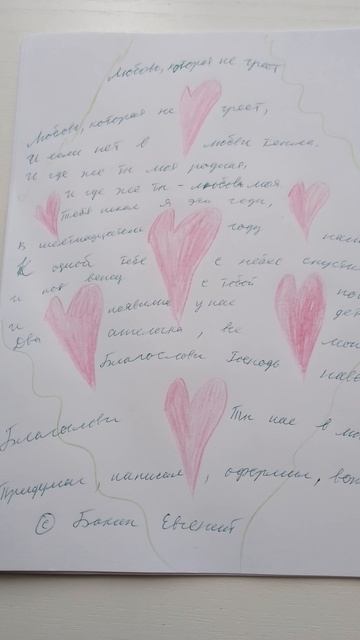 Любовь, которая не греет
Любовь, которая не греет,
И если нет в любви
И где же ты моя родная,
И где же ты - любовь моя
Тебя искал я эти годы,
В шестнадцатом году
К одной тебе с небес спусти
и под венец с тобой
и появились у нас
Два ангелочка, все мои
Благослови Господь наве
Благослови Ты нас в
Придумал, написал, оформил,
© Бокин Евгений